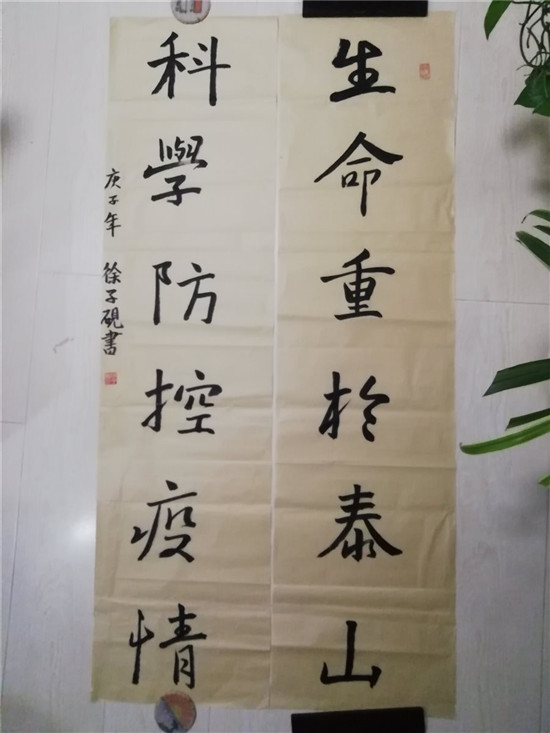 生命重於泰山
科學防控疫情
庚子年 徐子砚書